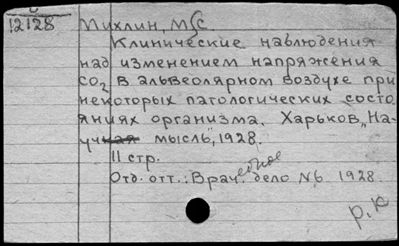 12128 Михлин, М. С.
Клинические наблюдения
над изменением напряжения
CO2 в альвеолярном воздухе при
некоторых патологических состо
яниях организма. Харьков, "На-
учная мысль", 1928.
11 стр.
Отд. отт.: Врачебное дело №6 1928.
р. К